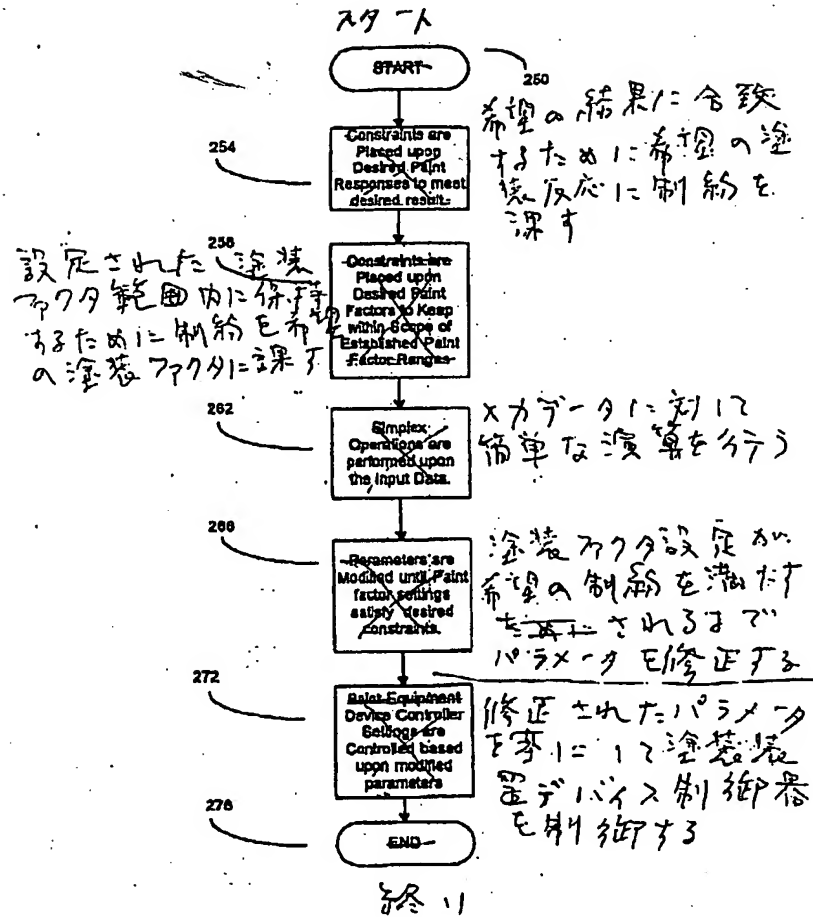 スタート
START
250
254
Constraints are
Placed upon
Desired Paint
Responses to meet
desired result.
希望の結果に合致
するために希望の塗
装反応に制約を
課す
258
Constraints are
Placed upon
Desired Paint
Factors to Keep
within Scope of
Established Paint
Factor Ranges
設定された塗装
ファクタ範囲内に保持
するために制約を希望
の塗装ファクタに課す
262
Simplex
Operations are
performed upon
the Input Data.
入力データに対して
簡単な演算を行う
266
Parameters are
Modified until Paint
factor settings
satisfy desired
constraints.
塗装ファクタ設定が
希望の制約を満たす
されるまで
パラメータを修正する
272
Paint Equipment
Device Controller
Settings are
Controlled based
upon modified
parameters
修正されたパラメータ
を基にして塗装装
置デバイス制御器
を制御する
276
END
終り